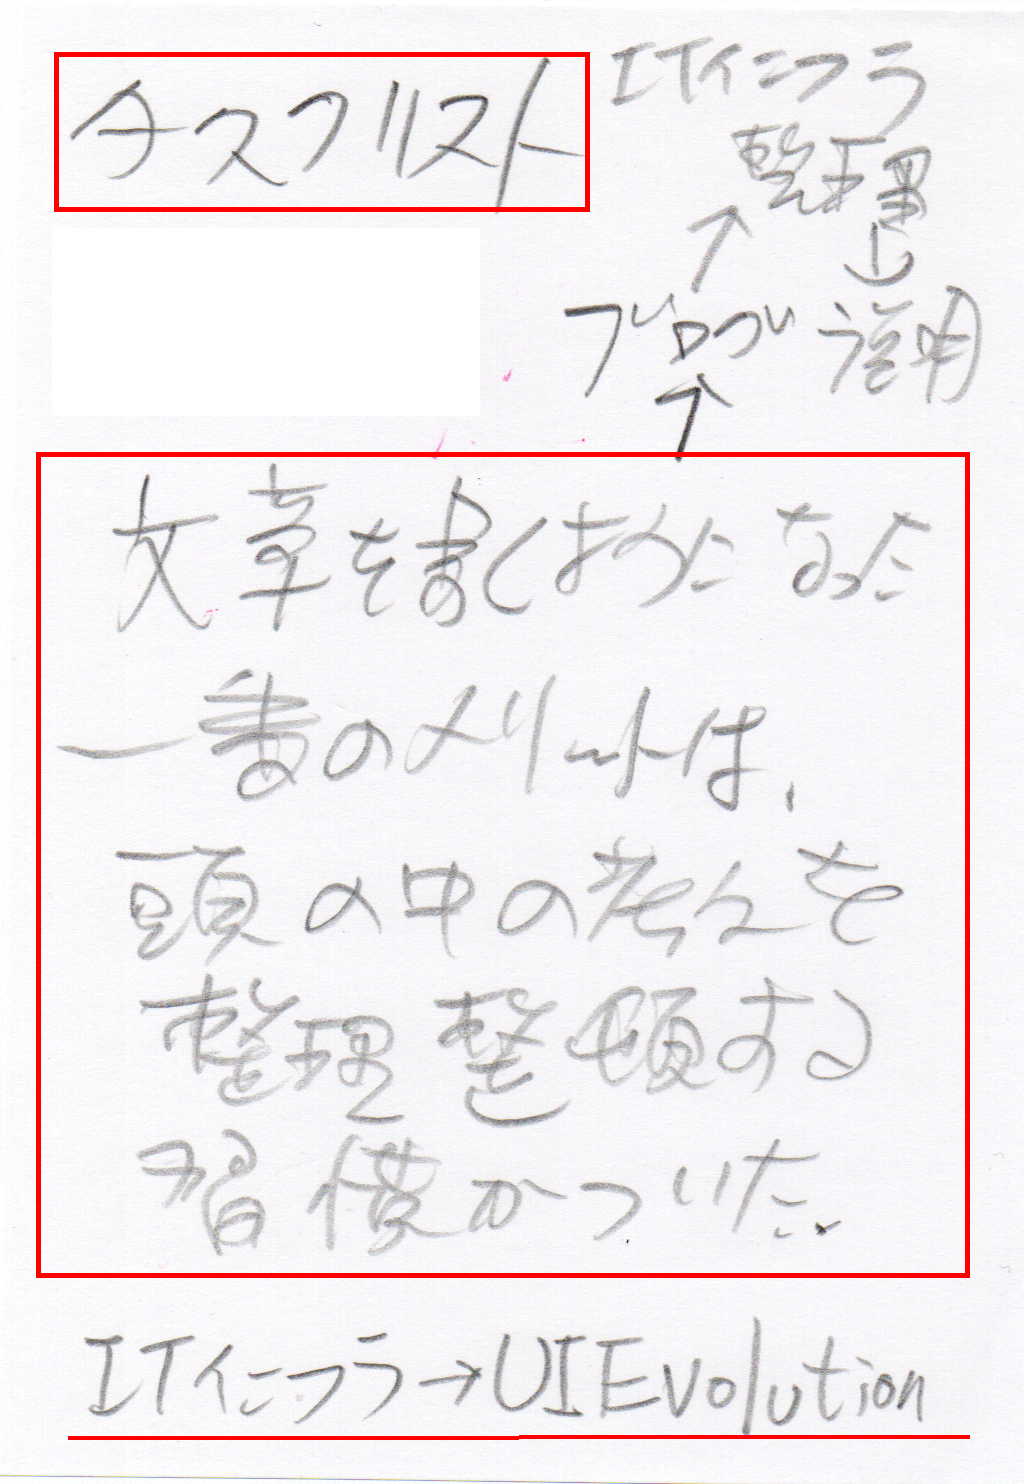 チスフリスト
ITインフラ
整理
↑ ↓
ブログ 説明
↑
文章を書くようになった
一番のメリットは、
頭の中の考えを
整理整頓する
習慣がついた。
ITインフラ→UIEvolution